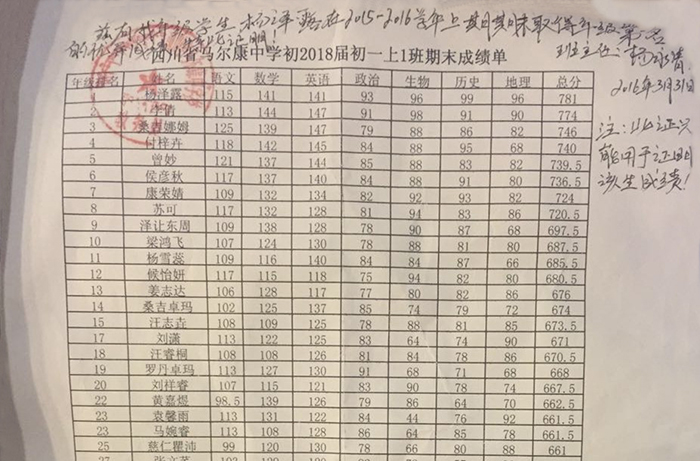 兹有我年级学生杨泽露在2015-2016学年上期期末取得年级第一名
的优异成 此证明!
班主任:
2016年3月31日
注:此证只
能用于证明
该生成绩!
四川省马尔康中学初2018届初一上1班期末成绩单
年级排名 姓名 语文 数学 英语 政治 生物 历史 地理 总分
杨泽露 115 141 141 93 96 99 96 781
2 李倩 113 144 147 91 98 91 90 774
3 桑吉娜姆 125 139 147 79 88 86 82 746
4 付梓卉 118 142 145 84 88 95 68 740
5 曾妙 121 137 144 85 88 83 82 739.5
6 侯彦秋 117 137 140 84 88 91 80 736.5
7 康荣婧 109 132 134 82 92 93 82 724
8 苏可 117 132 128 81 94 83 86 720.5
9 泽让东周 109 138 128 78 90 87 68 697.5
10 梁鸿飞 107 124 130 78 88 81 80 687.5
11 杨雪蕊 109 116 140 84 84 87 66 685.5
12 候怡妍 117 115 118 75 94 82 80 680.5
13 姜志达 106 128 117 77 80 82 86 676
14 桑吉卓玛 102 125 137 85 74 79 72 674
15 汪志垚 108 109 125 78 88 81 85 673.5
17 刘潇 113 122 125 83 64 74 90 671
18 汪睿桐 108 108 126 81 84 78 86 670.5
19 罗丹卓玛 113 127 130 91 68 71 68 668
20 刘祥睿 107 115 121 83 90 78 74 667.5
22 黄嘉煜 98.5 139 126 79 86 64 70 662.5
23 袁馨雨 113 131 122 84 44 76 92 661.5
23 马婉睿 113 108 128 86 64 85 78 661.5
25 慈仁瞿沛 99 120 130 78 66 80 88 661